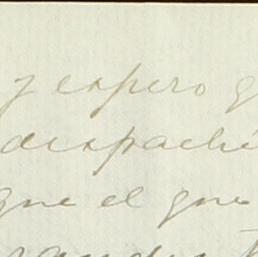 y espero q
despaché
que el que